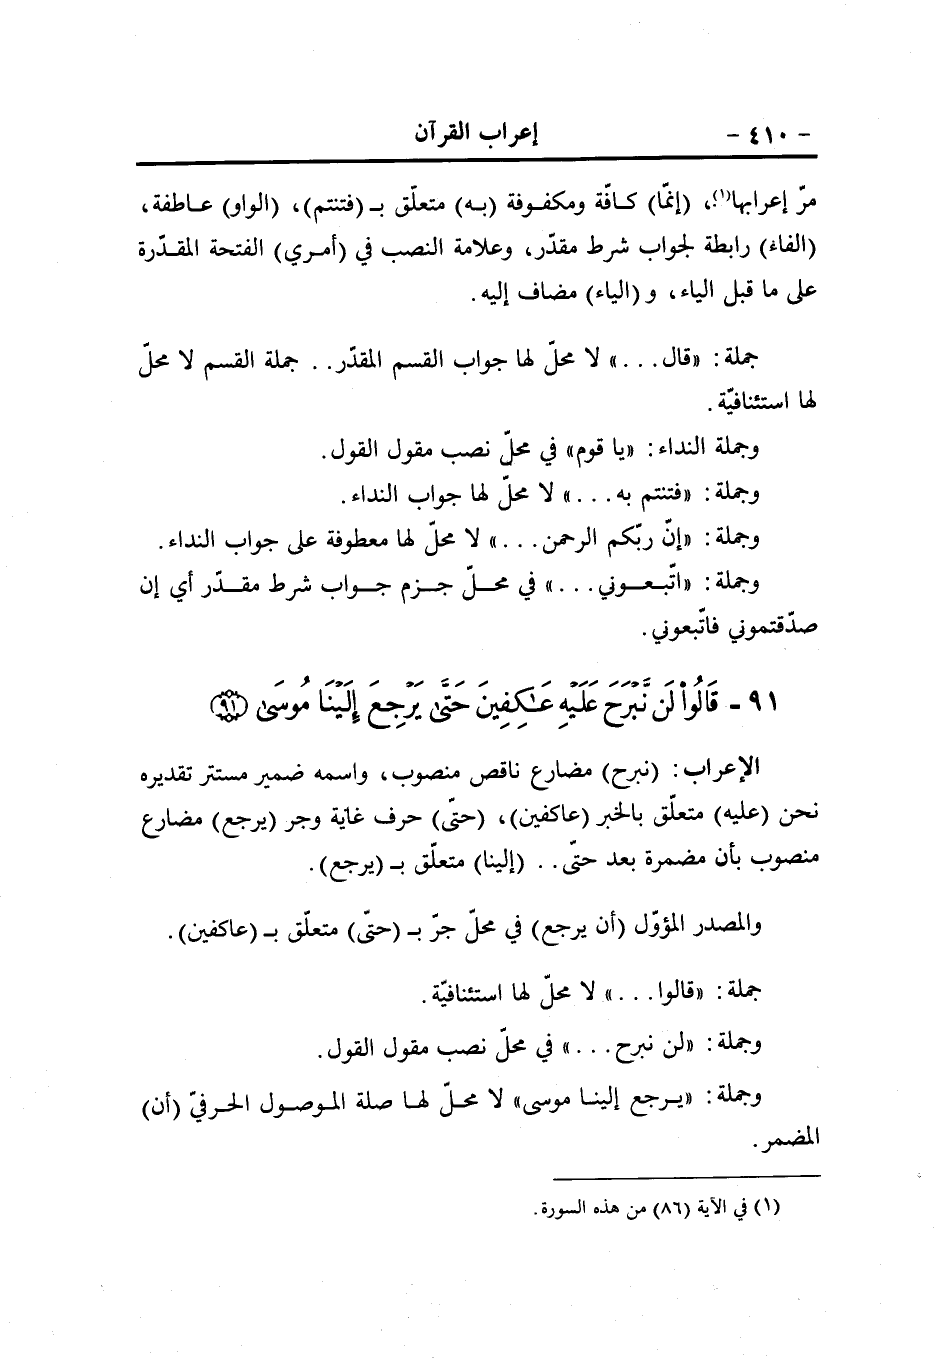 - ٤١٠ - إعراب القرآن
مرّ إعرابها(١)، (إنّما) كافّة ومكفوفة (به) متعلّق بـ (فتنتم)، (الواو) عاطفة،
(الفاء) رابطة لجواب شرط مقدّر، وعلامة النصب في (أمري) الفتحة المقدّرة
على ما قبل الياء، و (الياء) مضاف إليه.
جملة: «قال. . .» لا محلّ لها جواب القسم المقدّر. . جملة القسم لا محلّ
لها استئنافيّة.
وجملة النداء: «يا قوم» في محلّ نصب مقول القول.
وجملة: «فتنتم به. . .» لا محلّ لها جواب النداء.
وجملة: «إنّ ربّكم الرحمن. . .» لا محلّ لها معطوفة على جواب النداء.
وجملة: «اتّبعوني. . .» في محلّ جزم جواب شرط مقدّر أي إن
صدّقتموني فاتّبعوني.
٩١ - قَالُوا۟ لَن نَّبْرَحَ عَلَيْهِ عَـٰكِفِينَ حَتَّىٰ يَرْجِعَ إِلَيْنَا مُوسَىٰ (٩١)
الإعراب: (نبرح) مضارع ناقص منصوب، واسمه ضمير مستتر تقديره
نحن (عليه) متعلّق بالخبر (عاكفين)، (حتّى) حرف غاية وجر (يرجع) مضارع
منصوب بأن مضمرة بعد حتّى. . (إلينا) متعلّق بـ (يرجع).
والمصدر المؤوّل (أن يرجع) في محلّ جرّ بـ (حتّى) متعلّق بـ (عاكفين).
جملة: «قالوا. . .» لا محلّ لها استئنافيّة.
وجملة: «لن نبرح. . .» في محلّ نصب مقول القول.
وجملة: «يرجع إلينا موسى» لا محلّ لها صلة الموصول الحرفيّ (أن)
المضمر.
(١) في الآية (٨٦) من هذه السورة.